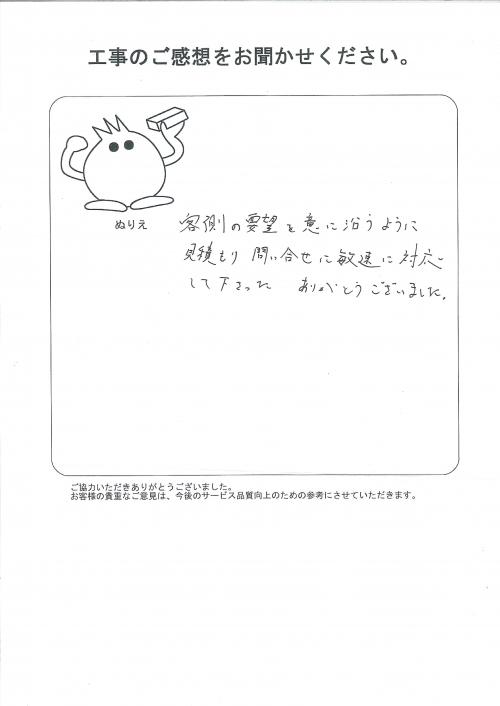 工事のご感想をお聞かせください。
ぬりえ
客側の要望を意に沿うように
見積もり 問い合せに敏速に対応
して下さった ありがとうございました。
ご協力いただきありがとうございました。
お客様の貴重なご意見は、今後のサービス品質向上のための参考にさせていただきます。